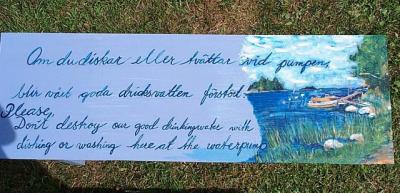 Om du diskar eller tvättar vid pumpen,
blir vårt goda dricksvatten förstört.
Please,
Don't destroy our good drinkingwater with
dishing or washing here at the waterpump